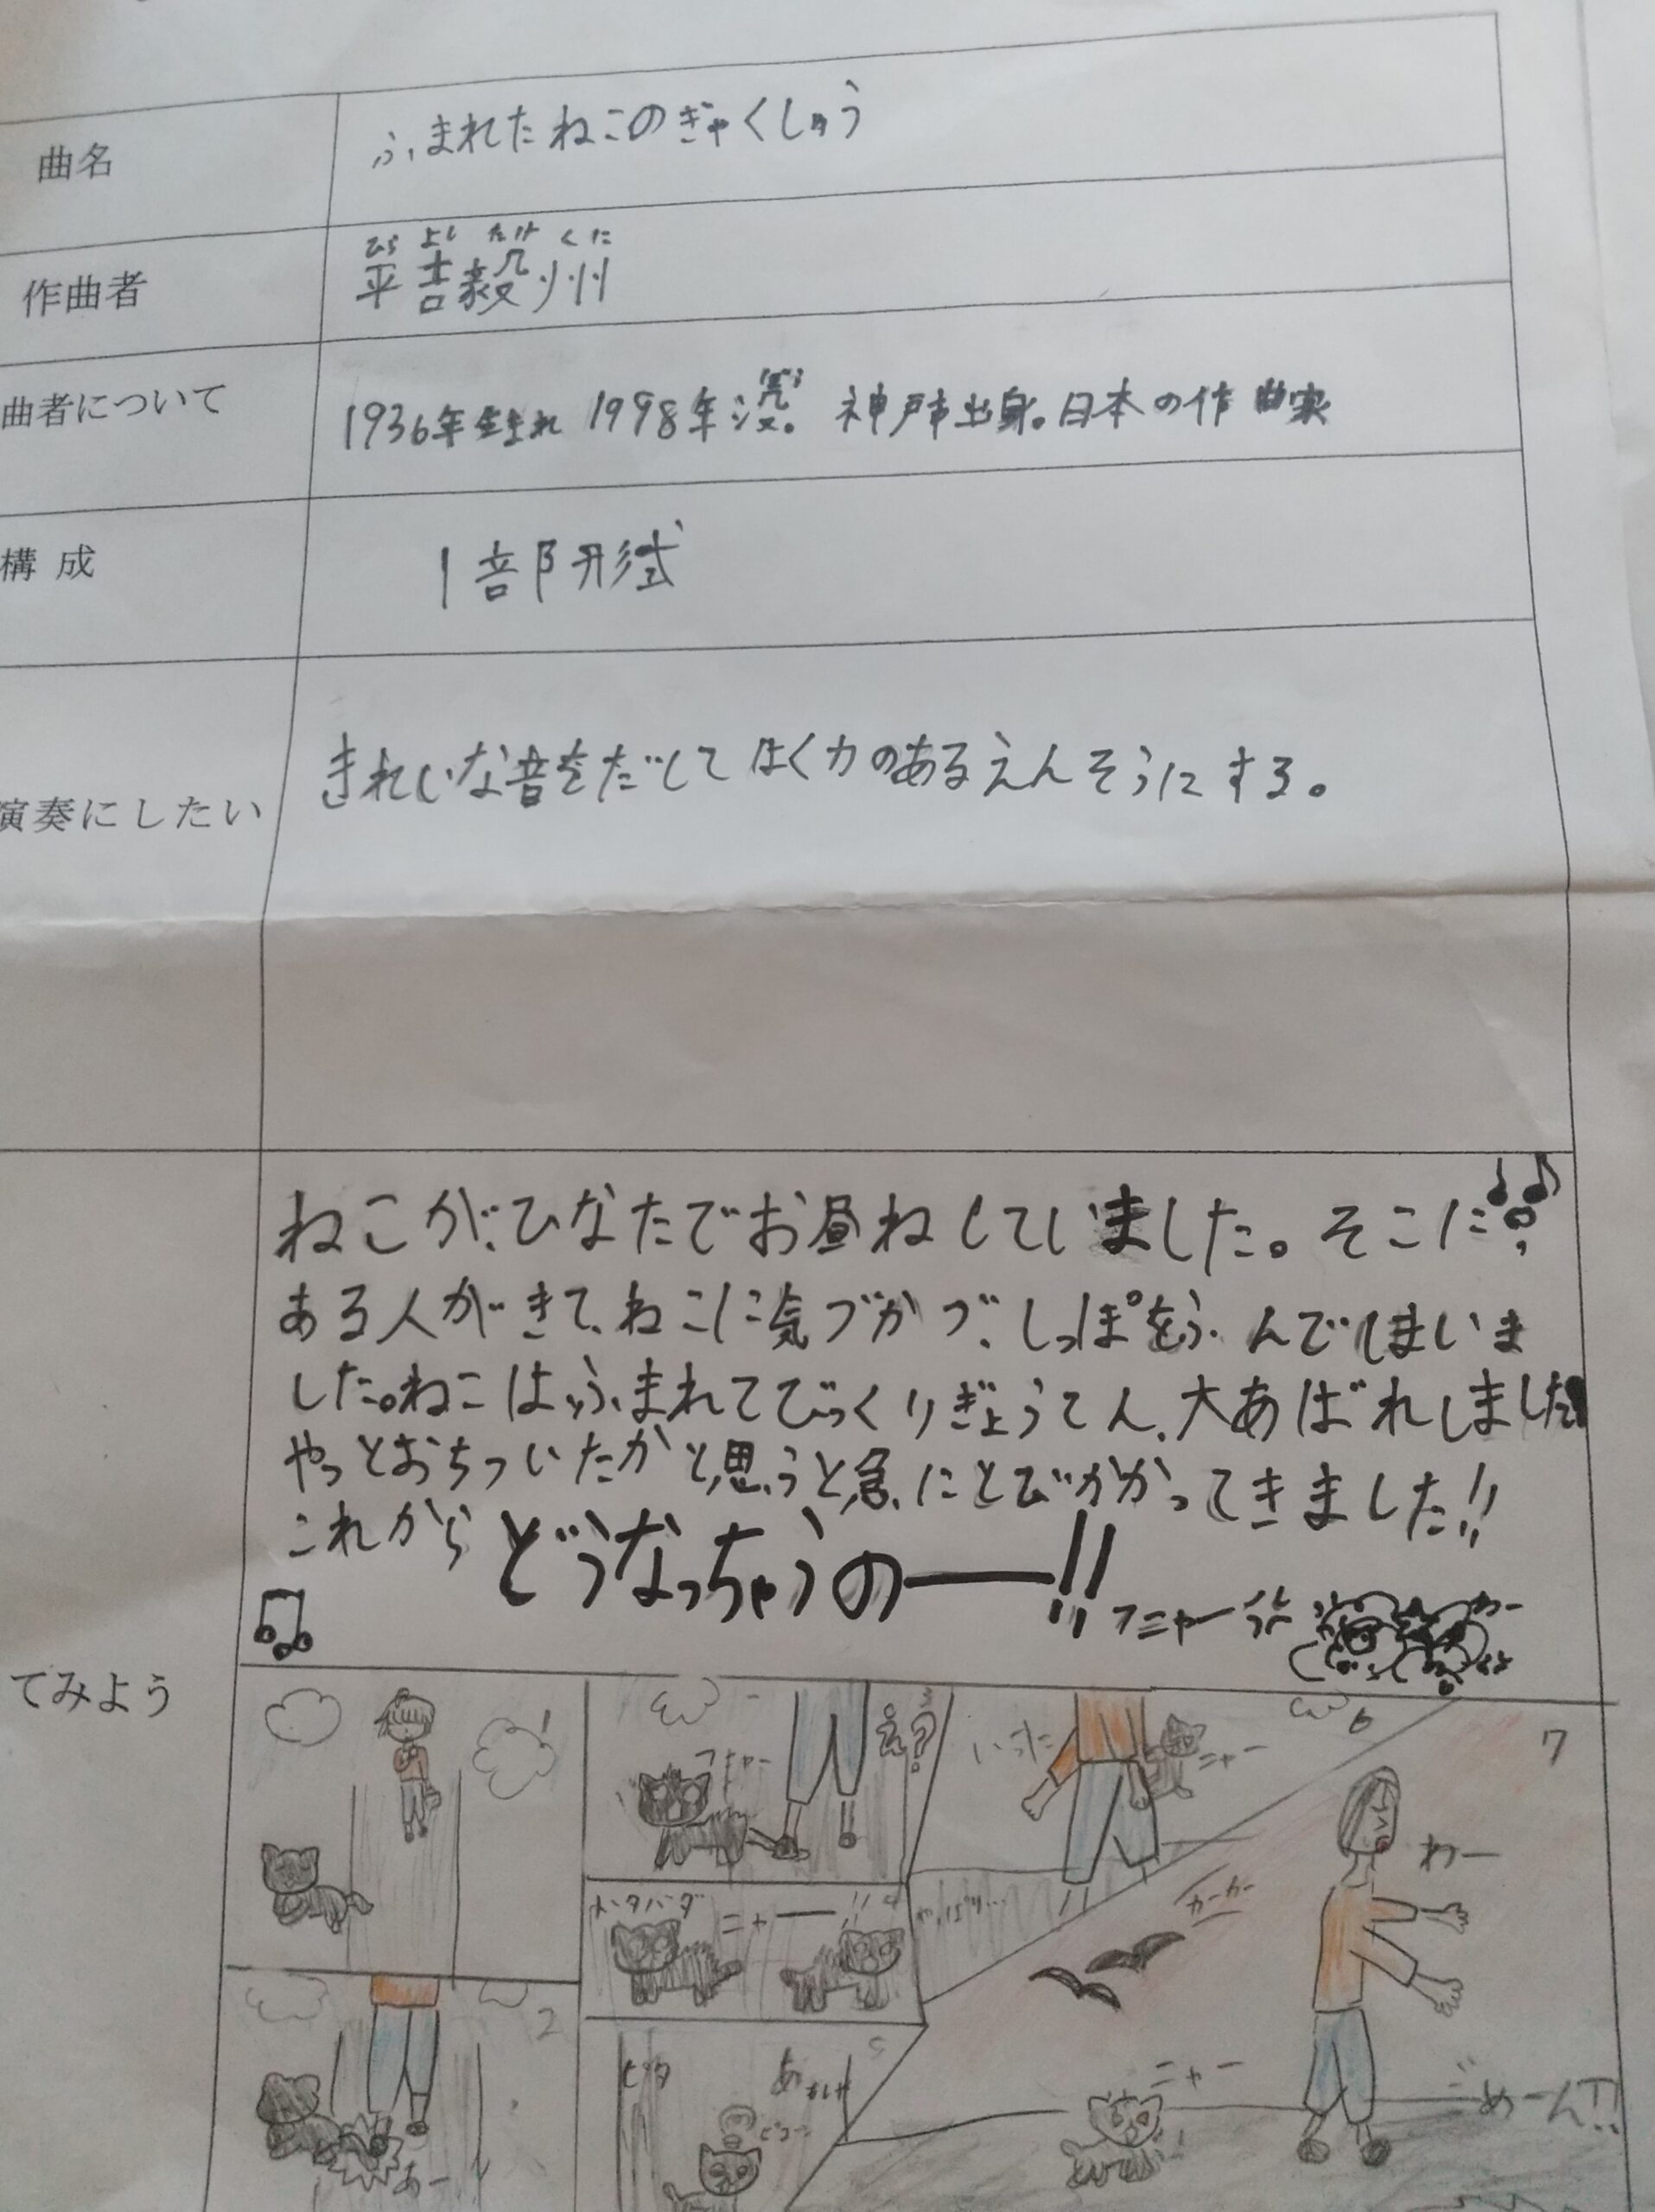 曲名
ふまれたねこのぎゃくしゅう
作曲者
ひら よし たけ くに
平吉毅州
曲者について
1936年生まれ 1998年没。 神戸市出身。日本の作曲家
ぼつ
構成
1部形式
演奏にしたい
きれいな音をだしてはく力のあるえんそうにする。
ねこが、ひなたでお昼ねしていました。そこに、
ある人がきて、ねこに気づかづ、しっぽをふんでしまいま
した。ねこはふまれてびっくりぎょうてん、大あばれしました
やっとおちついたかと思うと急にとびかかってきました!!
これからどうなっちゃうのー!!
フニャー
てみよう
1
フギャー
え?
3
いった
ニャー
6
7
わー
ドタバタ
ニャー!!
4
やっぱり…
カーカー
2
あー
ピタ
5
ニャー
ごめーん!!